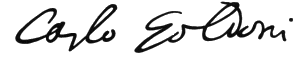 Carlo Goldoni